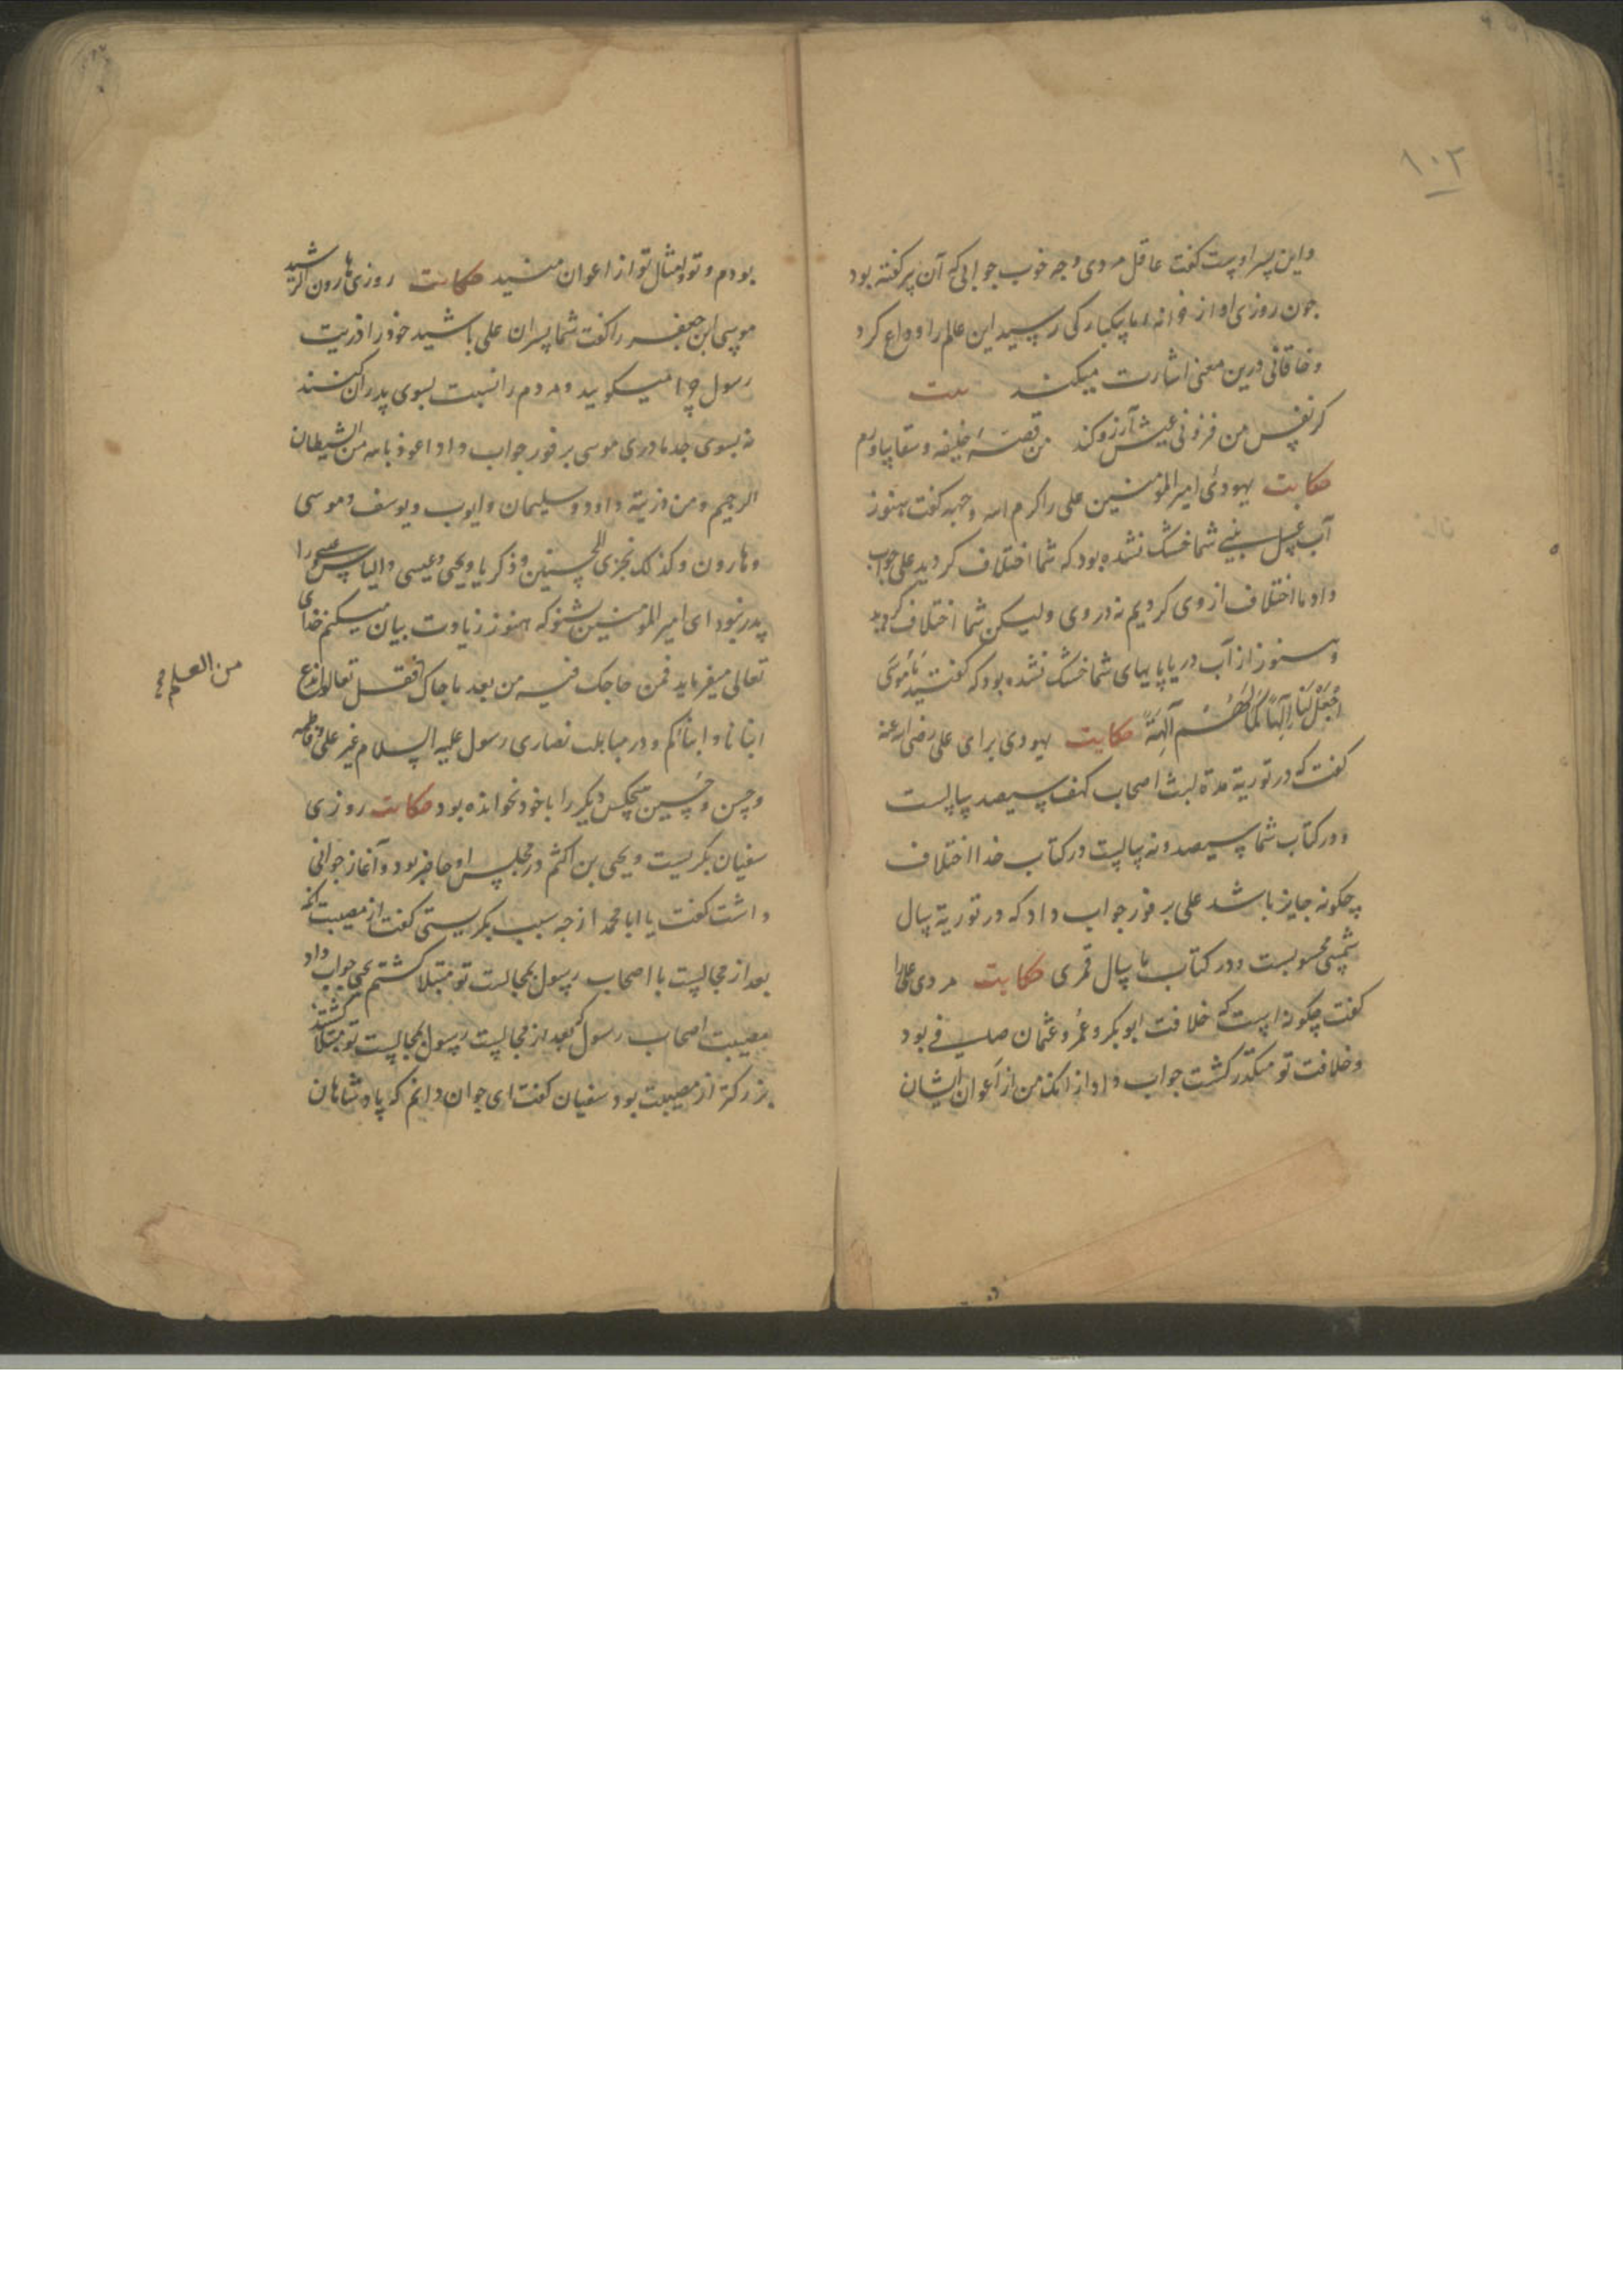 ۱۰۲
و این پسر اوست کفت عاقل مردی و چه خوب جوابی که آن پیر کفته بود
چون روزی او از خزانه بیکبارکی رسید این عالم را وداع کرد
و خاقانی درین معنی اشارت میکند بیت
کر نفس من فزونی عیش آرزو کند من قصهٔ خلیفه و سقا بیاورم
حکایت یهودئ امیر المؤمنین علی را کرم الله وجهه کفت هنوز
آب غسل نبی شما خشک نشده بود که شما اختلاف کردید علی جواب
داد ما اختلاف از وی کردیم نه در وی ولیکن شما اختلاف کردید
و هنوز از آب دریا پایهای شما خشک نشده بود که کفتید یَا مُوسَی
اجْعَلْ لَنَا اِلٰهًا کَمَا لَهُمْ آلِهَةٌ حکایت یهودی برای علی رضی الله عنه
کفت که در توریة مدة لبث اصحاب کهف سیصد سالست
و در کتاب شما سیصد و نه سالست در کتاب خدا اختلاف
چکونه جایز باشد علی بر فور جواب داد که در توریة سال
شمسی محسوبست و در کتاب ما سال قمری حکایت مردی علی را
کفت چکونه است که خلافت ابوبکر و عمر و عثمان صافی بود
و خلافت تو مکدر کشت جواب داد از آنک من از اعوان ایشان
بودم و تو و امثال تو از اعوان منید حکایت روزی هارون الرشید
موسی ابن جعفر را کفت شما پسران علی باشید خود را ذریت
رسول چرا میکویید و مردم را نسبت بسوی پدران کنند
نه بسوی جد مادری موسی بر فور جواب داد اعوذ بالله من الشیطان
الرجیم و من ذریته داود و سلیمان و ایوب و یوسف و موسی
و هارون و کذلک نجزی المحسنین و ذکریا و یحیی و عیسی و الیاس عیسی را
پدر نبود ای امیر المؤمنین بشنو که هنوز زیادت بیان میکنم خدای
تعالی میفرماید فمن حاجک فیه من بعد ما جاک فقل تعالوا ندع
من العلم صح
ابنانا و ابناکم و در مباهلت نصاری رسول علیه السلام غیر علی و فاطمه
و حسن و حسین هیچکس دیکر را با خود نخوانده بود حکایت روزی
سفیان بکریست و یحیی بن اکثم در مجلس او حاضر بود و آغاز جوانی
داشت کفت یا ابا محمد از چه سبب بکریستی کفت از مصیبت آنکه
بعد از مجالست با اصحاب رسول بمجالست تو مبتلا کشتم یحیی جواب داد
مصیبت اصحاب رسول که بعد از مجالست رسول بمجالست تو مبتلا کشتند
بزرکتر از مصیبت بود سفیان کفت ای جوان دانم که پادشاهان